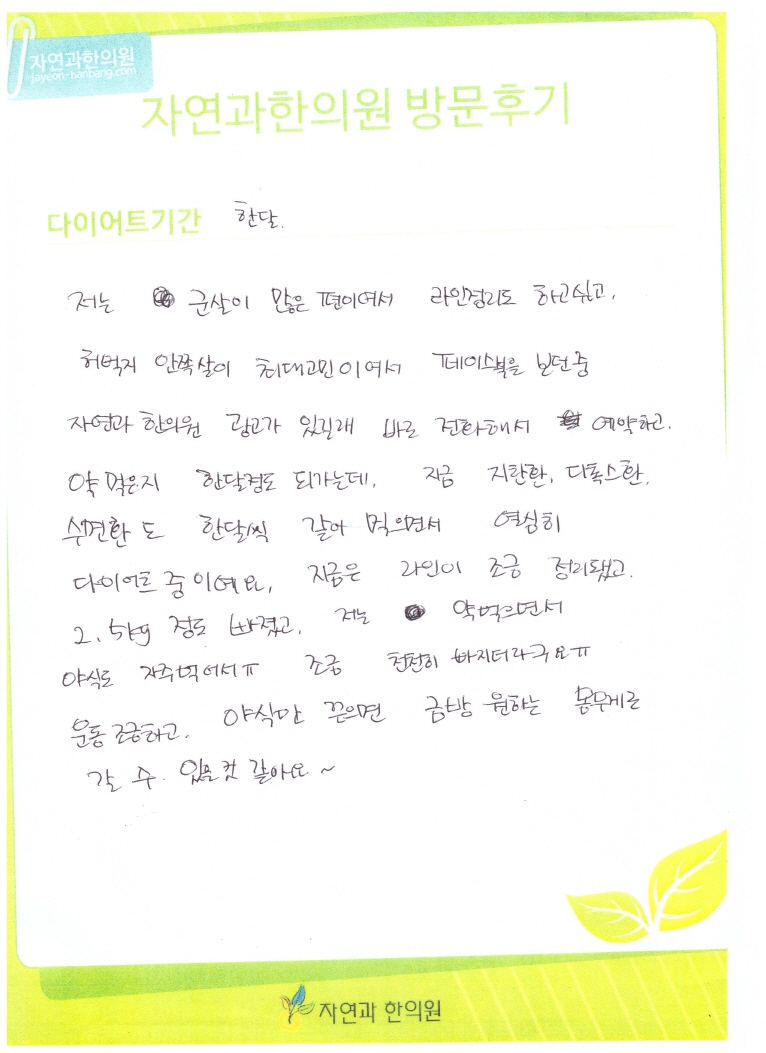 자연과한의원
jayeon-hanbang.com
자연과한의원 방문후기
다이어트기간 한달.
저는 군살이 많은 편이여서 라인정리도 하고싶고,
허벅지 안쪽살이 최대고민이여서 페이스북을 보던중
자연과 한의원 광고가 있길래 바로 전화해서 예약하고,
약 먹은지 한달정도 되가는데, 지금 지환환, 디톡스환,
수면환도 한달씩 갈아 먹으면서 열심히
다이어트 중이에요, 지금은 라인이 조금 정리됐고,
2.5kg 정도 빠졌고, 저는 약먹으면서
야식도 자주먹어서ㅠ 조금 천천히 빠지더라구요ㅠ
운동 조금하고, 야식만 끊으면 금방 원하는 몸무게로
갈 수 있을것 같아요~
자연과 한의원